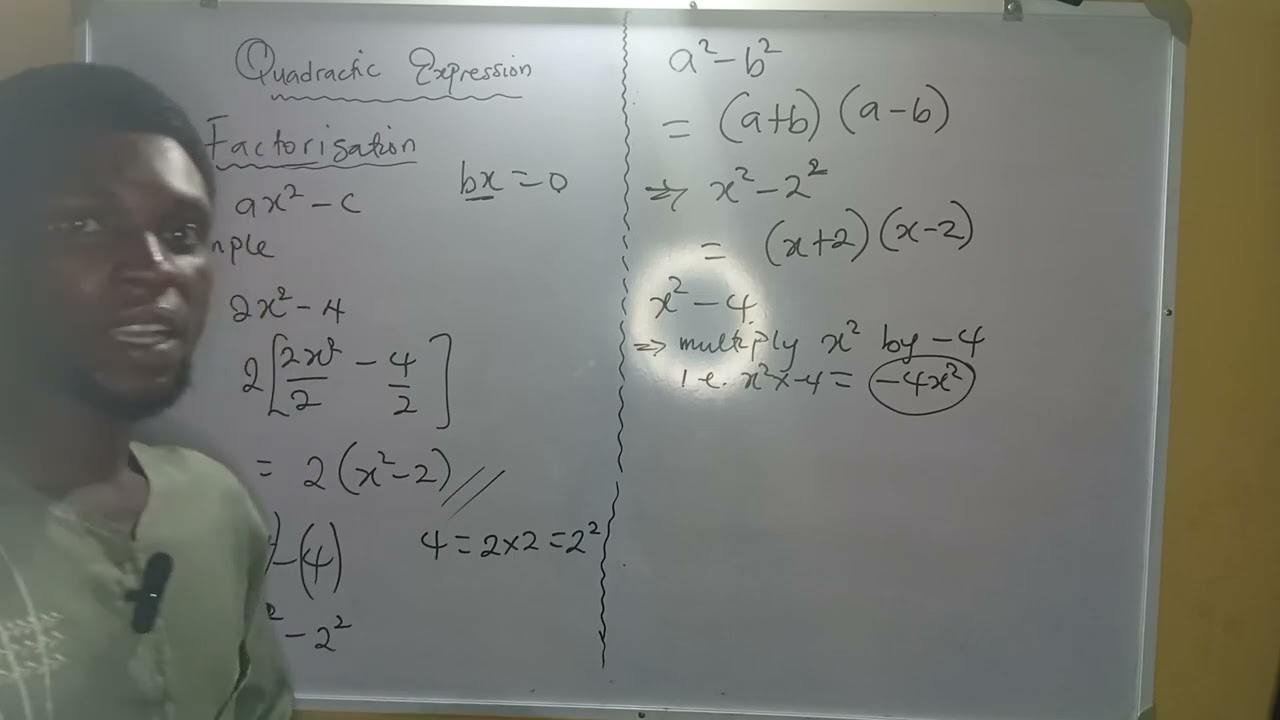 Quadractic Expression
Factorisation
ax² - c
bx = 0
mple
2x² - 4
2[2x²/2 - 4/2]
= 2(x²-2)
-(4)
4 = 2×2 = 2²
² - 2²
a² - b²
= (a+b)(a-b)
⇒ x² - 2²
= (x+2)(x-2)
x² - 4
⇒ multiply x² by -4
i.e. x² × -4 = -4x²